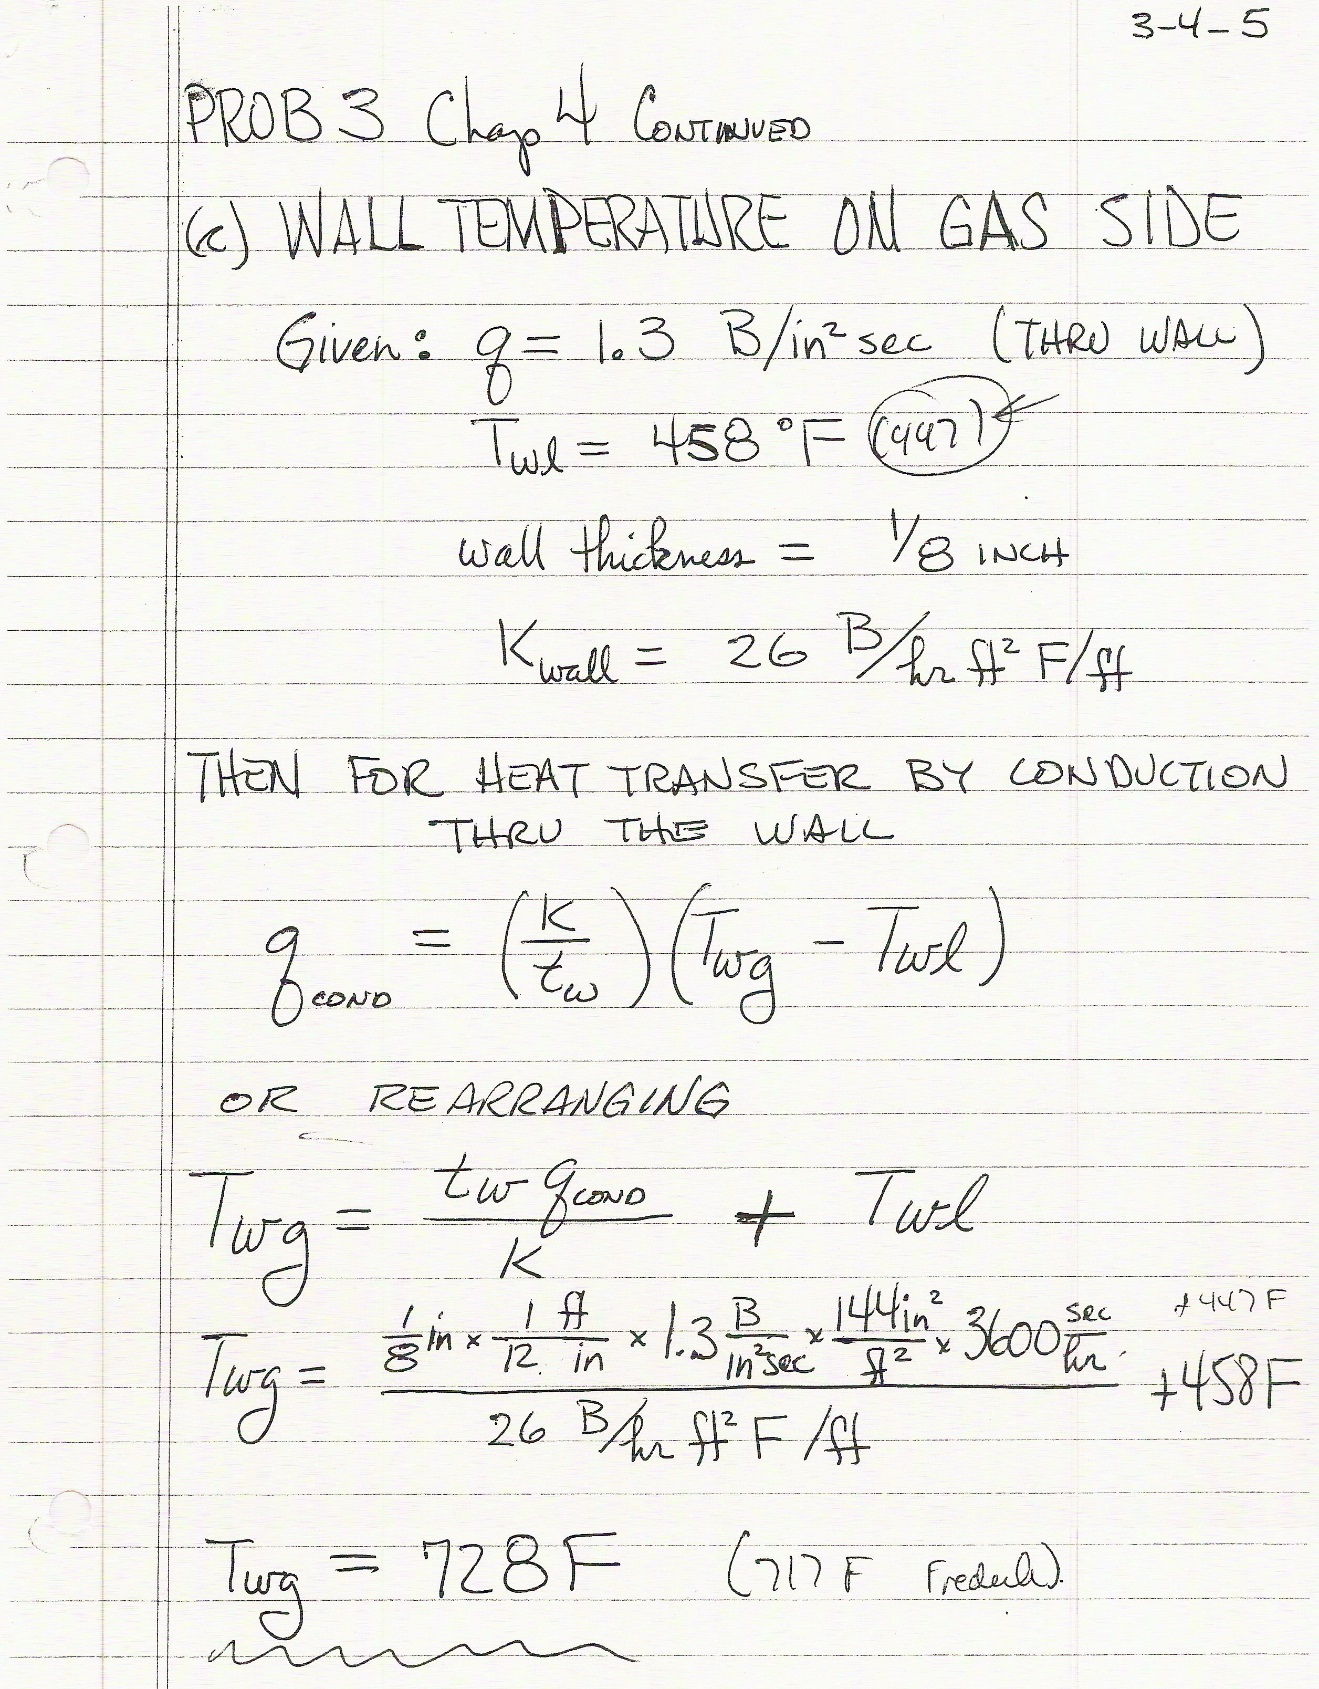 3-4-5
PROB 3 Chap 4 CONTINUED
(c) WALL TEMPERATURE ON GAS SIDE
Given: q = 1.3 B/in² sec (THRU WALL)
Twl = 458 °F (447)
wall thickness = 1/8 INCH
Kwall = 26 B/hr ft² F/ft
THEN FOR HEAT TRANSFER BY CONDUCTION
THRU THE WALL
qCOND = (K/tw)(Twg - Twl)
OR REARRANGING
Twg = tw qCOND / K + Twl
+447 F
Twg = 1/8 in x 1 ft/12 in x 1.3 B/in² sec x 144 in²/ft² x 3600 sec/hr / 26 B/hr ft² F/ft +458F
Twg = 728 F (717 F